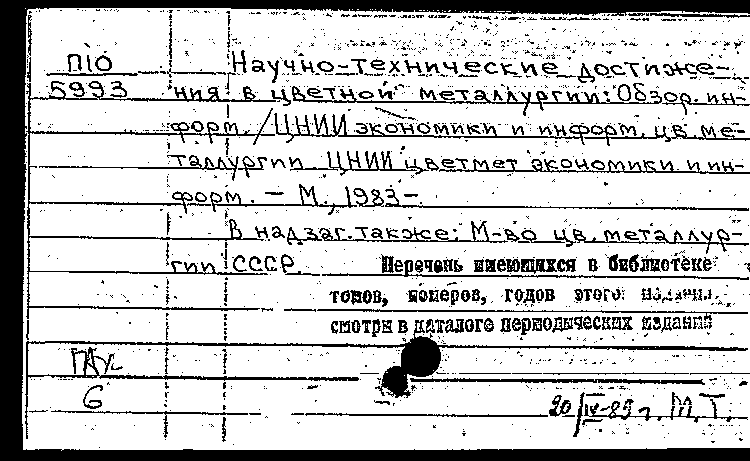 П10
5993
Научно-технические достиже-
ния в цветной металлургии: Обзор. ин-
форм. / ЦНИИ экономики и информ. цв. ме-
таллургии ЦНИИцветмет экономики и ин-
форм. — М., 1983 —.
В надзаг. также: М-во цв. металлур-
гии СССР.
Перечень имеющихся в библиотеке
томов, номеров, годов этого издания
смотри в каталоге периодических изданий
6
20/IV-85 г. М.Т.